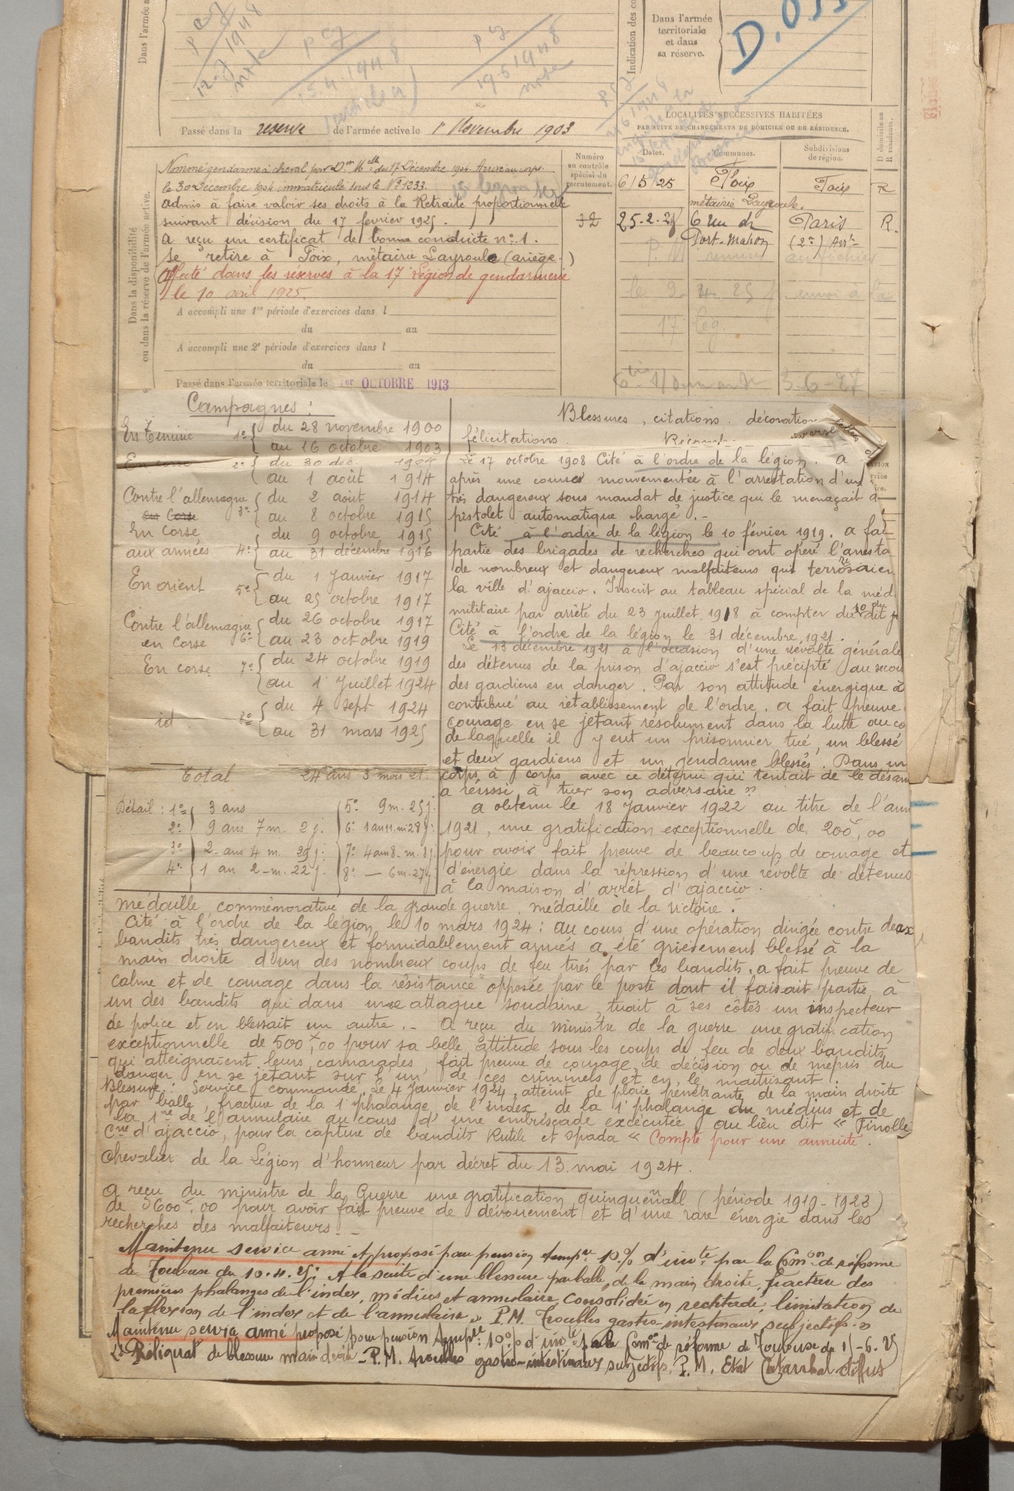 Dans l'armée
territoriale
et dans
sa réserve.
Passé dans la reserve de l'armée active le 1r Novembre 1903
LOCALITÉS SUCCESSIVES HABITÉES
PAR SUITE DE CHANGEMENTS DE DOMICILE OU DE RÉSIDENCE.
Dates. Communes. Subdivisions
de région.
Dans la disponibilité
ou dans la réserve de l'armée active.
Numéro
au contrôle
spécial du
recrutement.
6/5 25 Foix Foix R
métairie Layroule.
25.2.28 6 rue de Paris R.
Port-Mahon (2e) Arrt
Nommé gendarme à cheval par Don Mlle du 17 Décembre 1904 Arrivé au corps
le 30 Décembre 1904 immatriculé sous le No 1233.
admis à faire valoir ses droits à la Retraite proportionnelle
suivant décision du 17 février 1925.
a reçu un certificat de bonne conduite no 1.
Se retire à Foix, métairie Layroule (ariège.)
Affecté dans les réserves à la 17e région de gendarmerie
le 10 avril 1925.
A accompli une 1re période d'exercices dans l
du au
A accompli une 2e période d'exercices dans l
du au
Passé dans l'armée territoriale le 1er OCTOBRE 1913
Campagnes :
1o du 28 novembre 1900
au 16 octobre 1903
En corse 2o du 30 déc. 1904
au 1 août 1914
Contre l'allemagne 3o du 2 août 1914
en Corse au 8 octobre 1915
En Corse du 9 octobre 1915
aux armées 4o au 31 décembre 1916
En orient 5o du 1 Janvier 1917
au 25 octobre 1917
Contre l'allemagne du 26 octobre 1917
en corse 6o au 23 octobre 1919
En corse 7o du 24 octobre 1919
au 1 Juillet 1924
id 8o du 4 sept 1924
au 31 mars 1925
Total 24 ans 3 mois et
Détail : 1o 3 ans 5o 9 m. 25 j.
2o 9 ans 7 m. 2 j. 6o 1 an 11 m 28 j.
3o 2 ans 4 m. 7o 4 ans 8 m.
4o 1 an 2 m. 22 j. 8o — 6 m. 27 j
Blessures, citations, décorations
félicitations.
Le 17 octobre 1908 Cité à l'ordre de la légion. a
après une course mouvementée à l'arrestation d'un
très dangereux sous mandat de justice qui le menaçait d
pistolet automatique chargé. -
Cité à l'ordre de la légion le 10 février 1919. a fait
partie des brigades de recherches qui ont opéré l'arresta
de nombreux et dangereux malfaiteurs qui terrorisaien
la ville d'ajaccio. Inscrit au tableau spécial de la méd
militaire par arrêté du 23 Juillet 1918 à compter du
Cité à l'ordre de la légion le 31 décembre 1921.
Le 13 décembre 1921 à l'occasion d'une révolte générale
des détenus de la prison d'ajaccio s'est précipité au secou
des gardiens en danger. Par son attitude énergique a
contribué au rétablissement de l'ordre. a fait preuve
courage en se jetant résolument dans la lutte au co
de laquelle il y eut un prisonnier tué, un blessé
et deux gardiens et un gendarme blessés. Dans un
corps à corps avec ce détenu qui tentait de le désarm
a réussi à tuer son adversaire"
a obtenu le 18 Janvier 1922 au titre de l'ann
1921, une gratification exceptionnelle de 200f,00
pour avoir fait preuve de beaucoup de courage et
d'énergie dans la répression d'une révolte de détenus
à la maison d'arrêt d'ajaccio.
médaille commémorative de la grande guerre, médaille de la victoire.
Cité à l'ordre de la légion le 10 mars 1924 : au cours d'une opération dirigée contre deux
bandits très dangereux et formidablement armés a été grièvement blessé à la
main droite d'un des nombreux coups de feu tirés par les bandits. a fait preuve de
calme et de courage dans la résistance opposée par le poste dont il faisait partie à
un des bandits qui dans une attaque soudaine, tuait à ses côtés un inspecteur
de police et en blessait un autre. - a reçu du ministre de la guerre une gratification
exceptionnelle de 500f,00 pour sa belle attitude sous les coups de feu de deux bandits
qui atteignaient leurs camarades, fait preuve de courage, de décision ou de mépris du
danger en se jetant sur l'un de ces criminels et en le maîtrisant.
Blessure : Service commandé, Le 4 Janvier 1924, atteint de plaie pénétrante de la main droite
par balle, fracture de la 1e phalange de l'index, de la 1e phalange du médius et de
la 1re de l'annulaire au cours d'une embuscade exécutée au lieu dit « Finolle
Cne d'ajaccio, pour la capture de bandits Rutili et Spada « Compte pour une annuité.
Chevalier de la Légion d'honneur par décret du 13 mai 1924.
a reçu du ministre de la Guerre une gratification quinquénall (période 1919-1923)
de 3600f,00 pour avoir fait preuve de dévouement et d'une rare énergie dans les
recherches des malfaiteurs
Maintenu service armé et proposé pour pension tempre 10% d'invté par la Comon de réforme
de Toulouse du 10.4.25. A la suite d'une blessure par balle, de la main droite, fracture des
premières phalanges de l'index, médius et annulaire consolidée en rectitude, limitation de
la flexion de l'index et de l'annulaire. P.M. Troubles gastro-intestinaux subjectifs.
Maintenu service armé proposé pour pension tempre 10% d'invté par la Comon de réforme de Toulouse du 6.25
Reliquat de blessure main droite - P.M. troubles gastro-intestinaux subjectifs. P.M. Etat